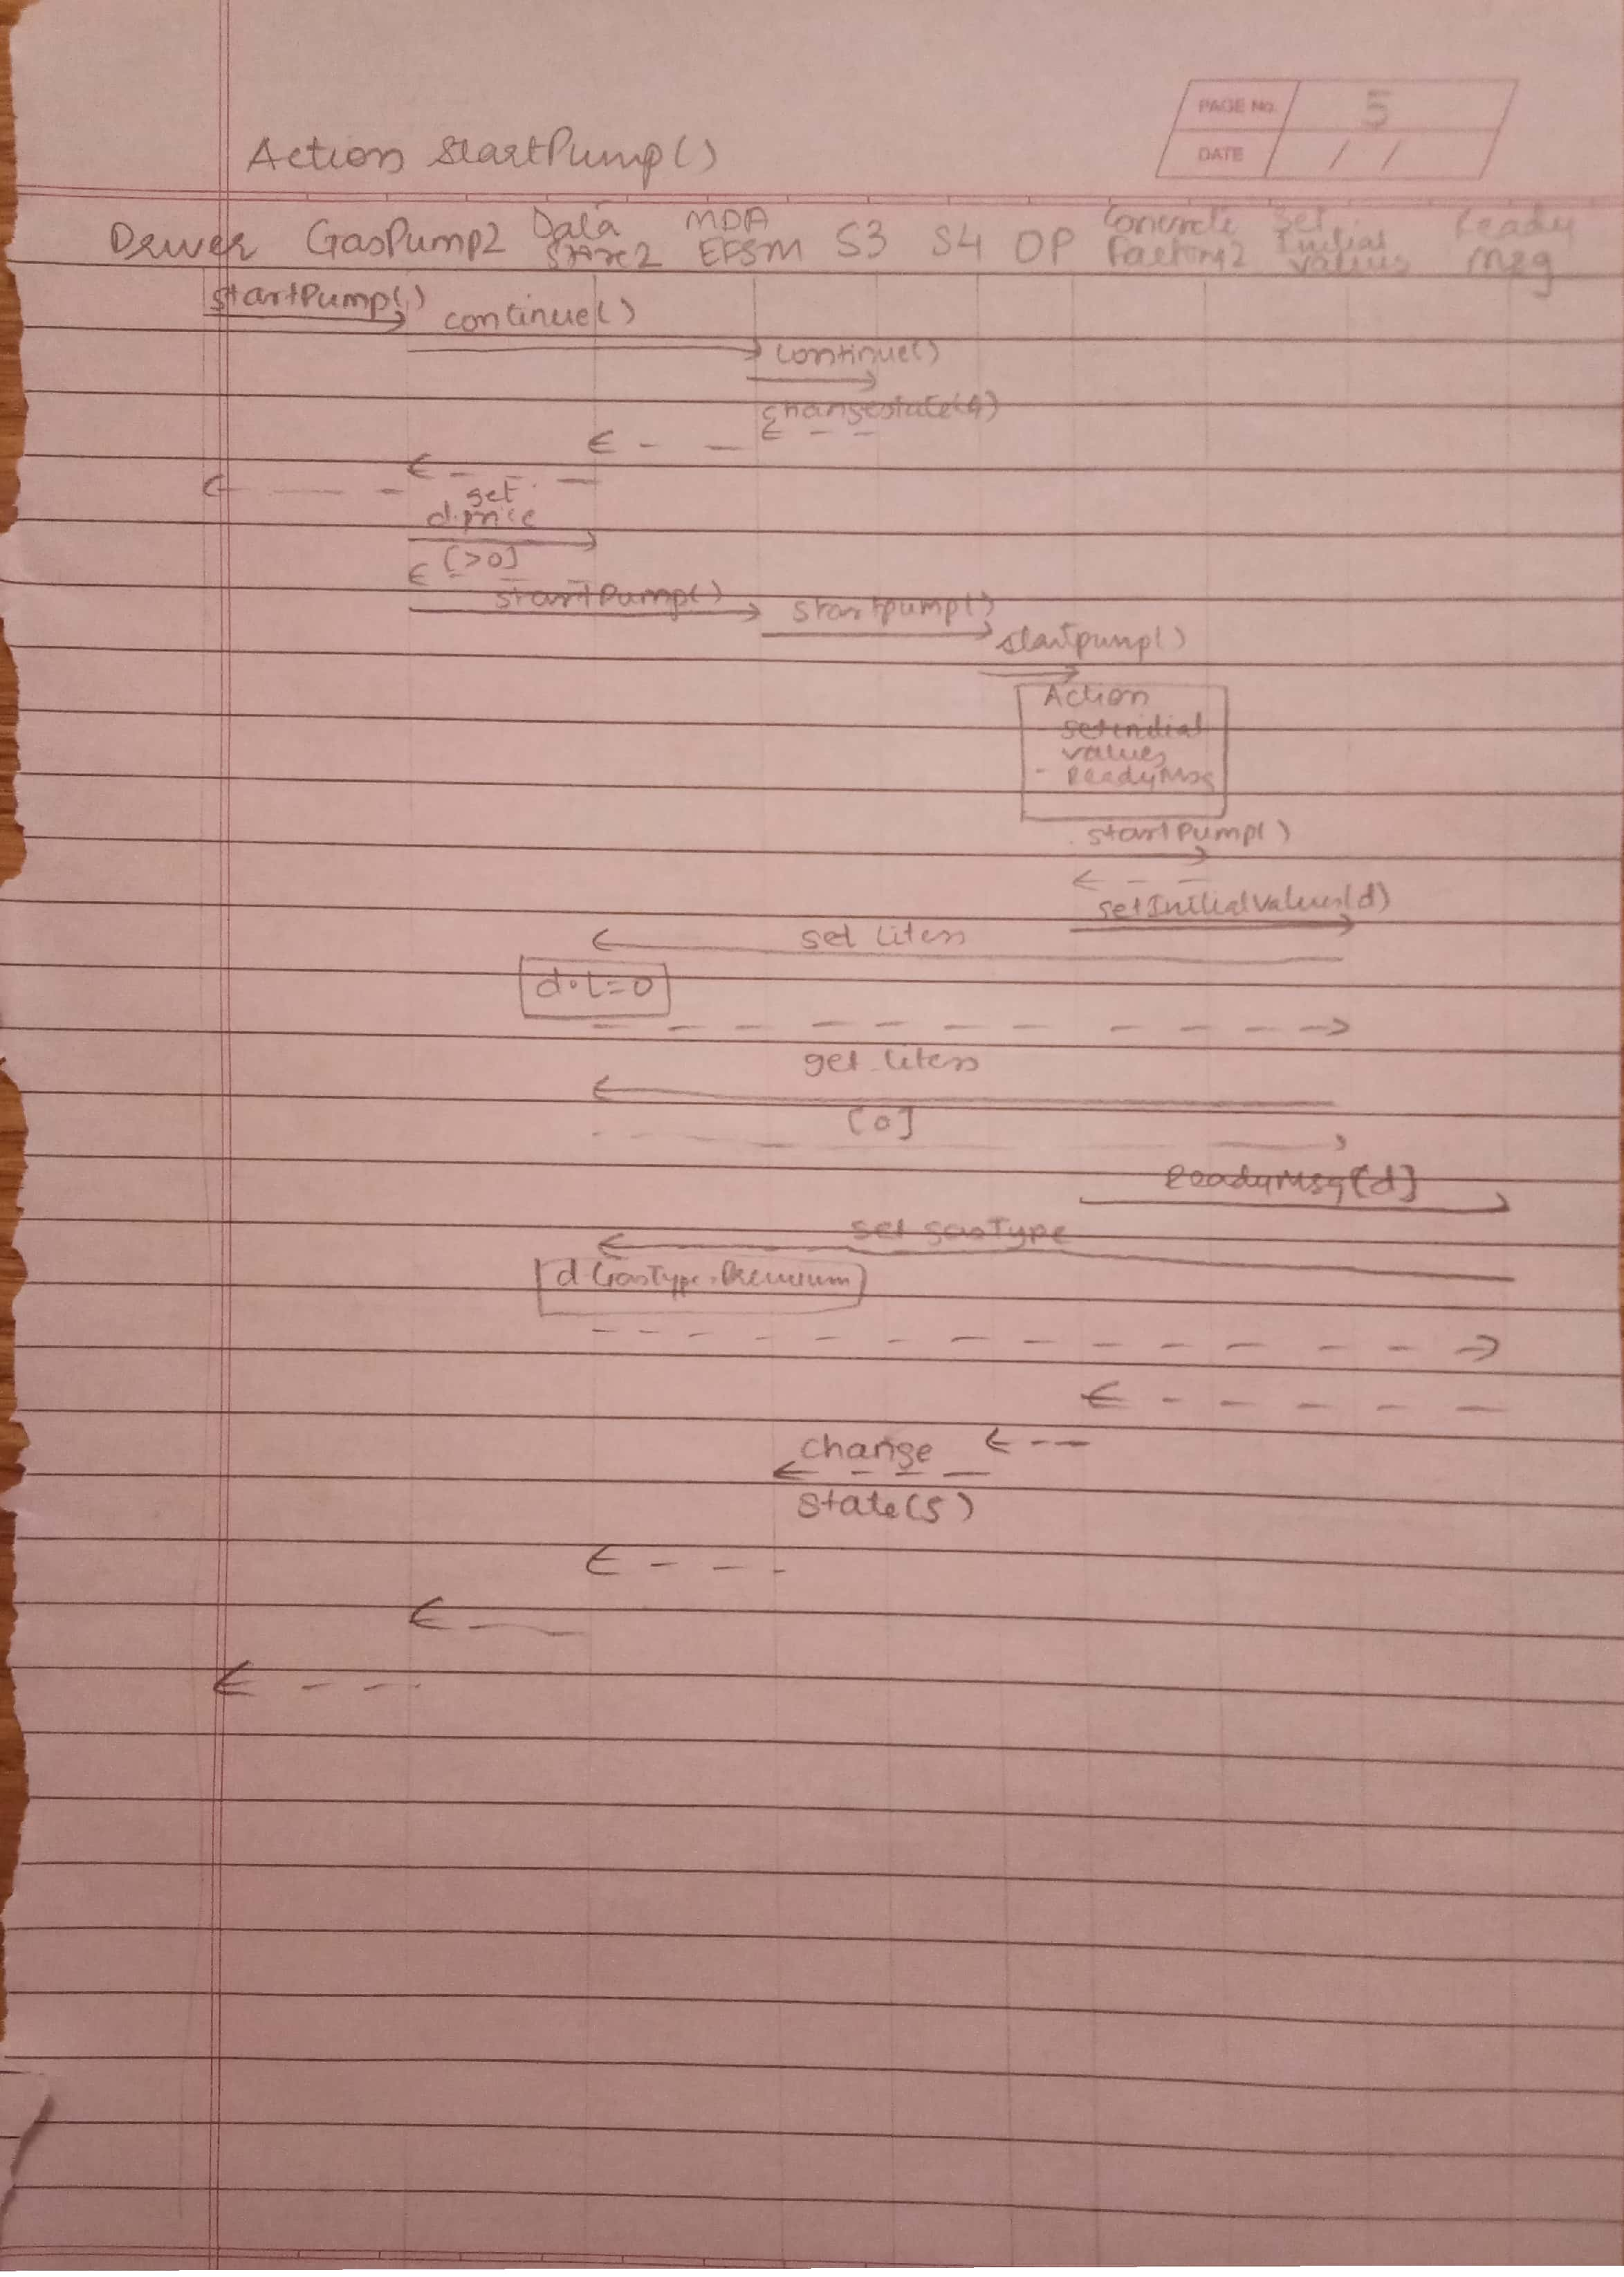 PAGE No. 5
DATE / /
Action StartPump()
Driver GasPump2 Data Store2 MDA EFSM S3 S4 OP Concrete Factory2 Set Initial Values Ready Msg
startPump()
continue()
continue()
changestate(4)
set
d.price
[>0]
startPump()
startpump()
startpump()
Action
- setinitial
values
- ReadyMsg
startPump()
setInitialValues(d)
set liters
d.L=0
get liters
[0]
ReadyMsg[d]
set gasType
d.GasType=Premium
change
state(5)